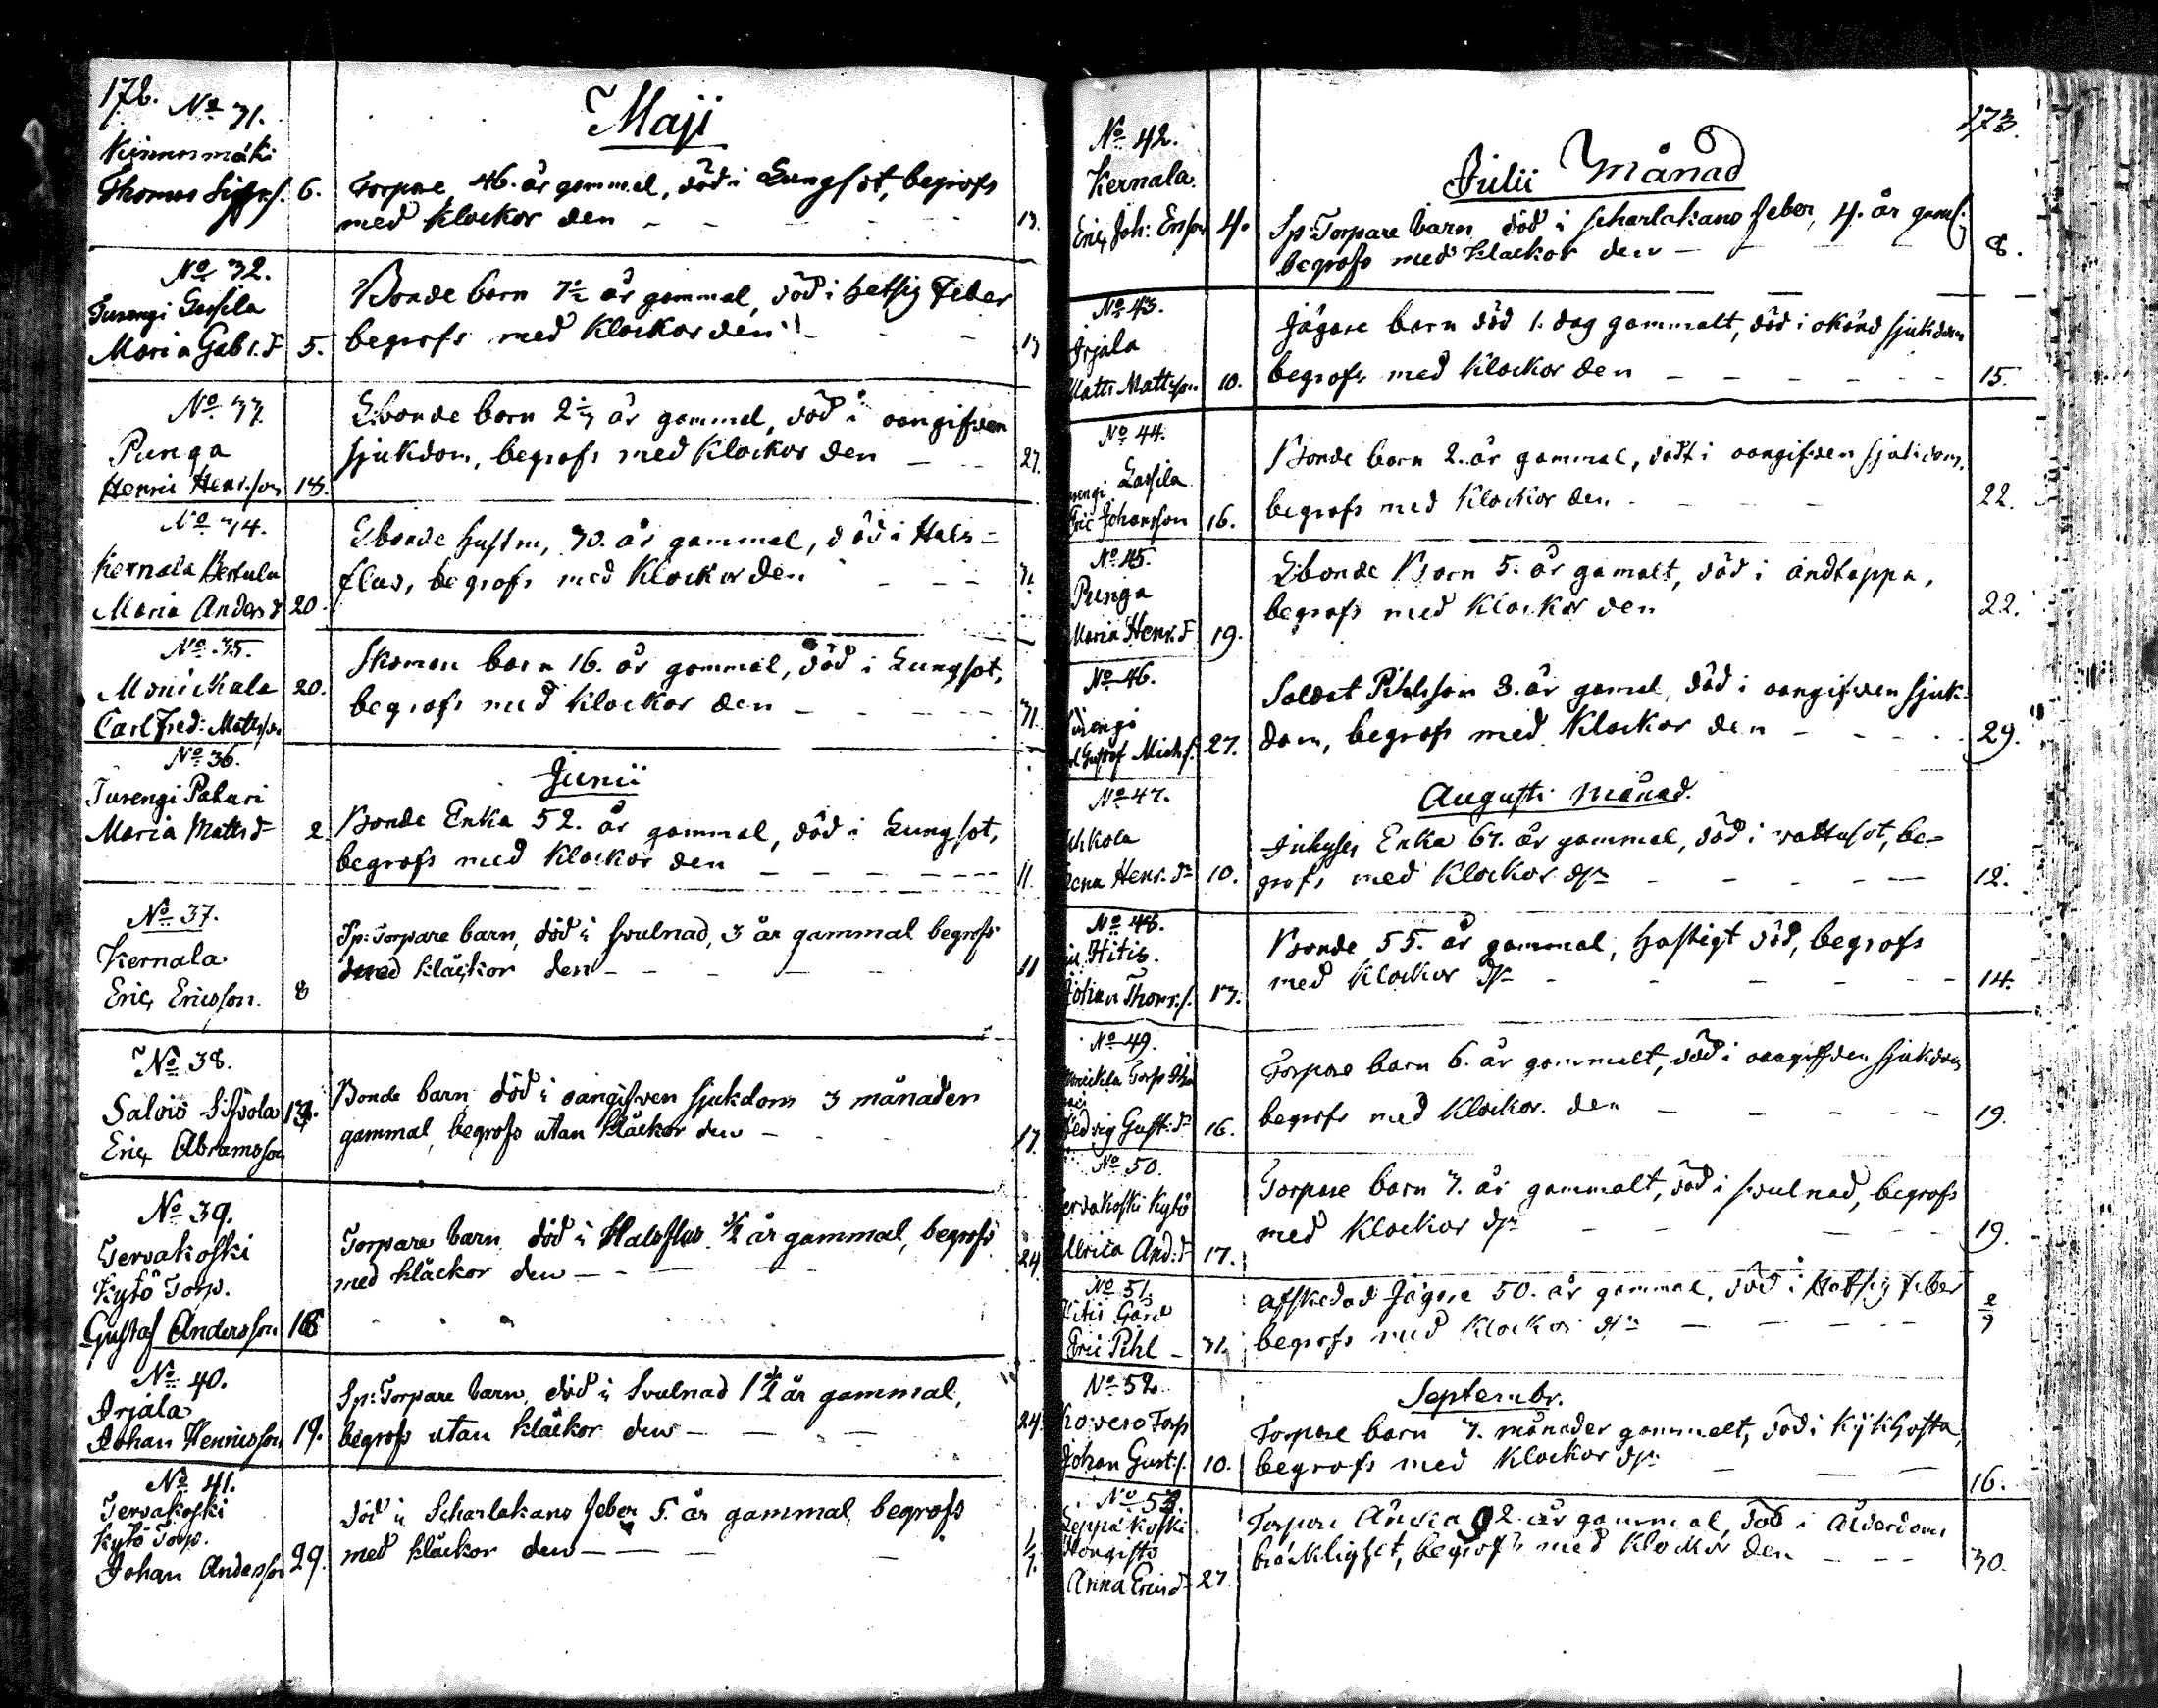 172.
No 31.
Maji
Kinnosmäki
Thomas Sigfr:s. 6. Torpare 46. år gammal, död i Lungsot, begrofs
med klockor den - - - - 13.
No 32.
Turengi Lassila
Maria Gabr.d 5.
Bonde barn 7½ år gammal, död i hetsig Feber
begrofs med Klockor den - - 13
No 33.
Punga
Henric Henr.son 13.
Bonde barn 2⅓ år gammal, död i oangifven
sjukdom, begrofs med Klockor den - - 27.
No 34.
Kernala Bertula
Maria Anders d 20.
Bonde hustru, 30. år gammal, död i Hals=
flus, begrofs med Klockor den - - - 31.
No 35.
Monickala 20.
Carl Fred: Mattsson
Skoman barn 16. år gammal, död i Lungsot,
begrofs med klockor den - - - - 31
No 36.
Junii
Turengi Pahari
Maria Matts d 2.
Bonde Enka 52. år gammal, död i Lungsot,
begrofs med Klockor den - - - - 11.
No 37.
Kernala
Eric Ericsson. 8
Sp: Torpare barn, död i svulnad, 3 år gammal begrofs
med kläckor den - - - - 11
No 38.
Salois Sifvola 13.
Eric Abramsson
Bonde barn död i oangifven sjukdom 3 månader
gammal, begrofs utan kläckor den - - 17.
No 39.
Tervakoski
Kytö Torp.
Gustaf Andersson 18
Torpare barn död i Halsflus ½ år gammal, begrofs
med kläckor den - - - - 24.
No 40.
Irjala
Johan Henricsson 19.
Sp: Torpare barn, död i Svulnad 1½ år gammal,
begrofs utan kläckor den - - - - 24.
No 41.
Tervakoski
Kytö Torp.
Johan Andersson 29.
död i Scharlakans feber 5. år gammal, begrofs
med kläckor den - - - - 1/7.
173.
No 42.
Julii Månad
Kernala
Eric Joh: Ersson 4.
Sp: Torpare barn död i scharlakans feber, 4. år gaml:
begrofs med klackor den - 8.
No 43.
Irjala
Matts Mattsson 10.
Jägare barn död 1. dag gammalt, död i okänd sjukdom
begrofs med klockor den - - - - - - 15.
No 44.
Lassila
Eric Johansson 16.
Bonde barn 2. år gammal, dödt i oangifven sjukdom.
begrofs med Klockor den - - - - 22.
No 45.
Punga
Maria Henr.d 19.
Bonde Barn 5. år gamalt, död i andtäppa,
begrofs med klockor den 22.
No 46.
Gustaf Mich.s. 27.
Soldat Pihls son 3. år gamal, död i oangifven sjuk-
dom, begrofs med Klockor den - - - - 29.
No 47.
Augusti månad.
Henr. dr 10.
Inhyses Enka 67. år gammal, död i vattusot, be-
grofs med Klockor dr - - - - - 12.
No 48.
Hitis.
Johan Thom:s. 13.
Bonde 55. år gammal, hastigt död, begrofs
med klockor dr - - - - - 14.
No 49.
Hedvig Gust: dr 16.
Torpare barn 6. år gammalt, död i oangifven sjukdom
begrofs med Klockor. den - - - - 19.
No 50.
Kytö
Ulrica And:d 17.
Torpare barn 7. år gammalt, död i svulnad, begrofs
med klockor dr - - - - 19.
No 51.
Hitis Gård
Eric Pihl - 31.
Afskedad Jägare 50. år gammal, död i Hetsig feber
begrofs med klockor dr - - - - 2/9
No 52.
Septembr.
Torp
Johan Gust:s. 10.
Torpare barn 7. månader gammalt, död i Kykhosta,
begrofs med Klockor dr - - - 16.
No 53.
Leppäkoski
Anna Erics d 27
Torpare Änka 92. år gammal, död i Ålderdoms
bräcklighet, begrofs med klockor den - - - 30.